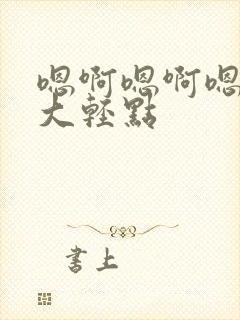 嗯啊嗯啊嗯
大輕點
書上